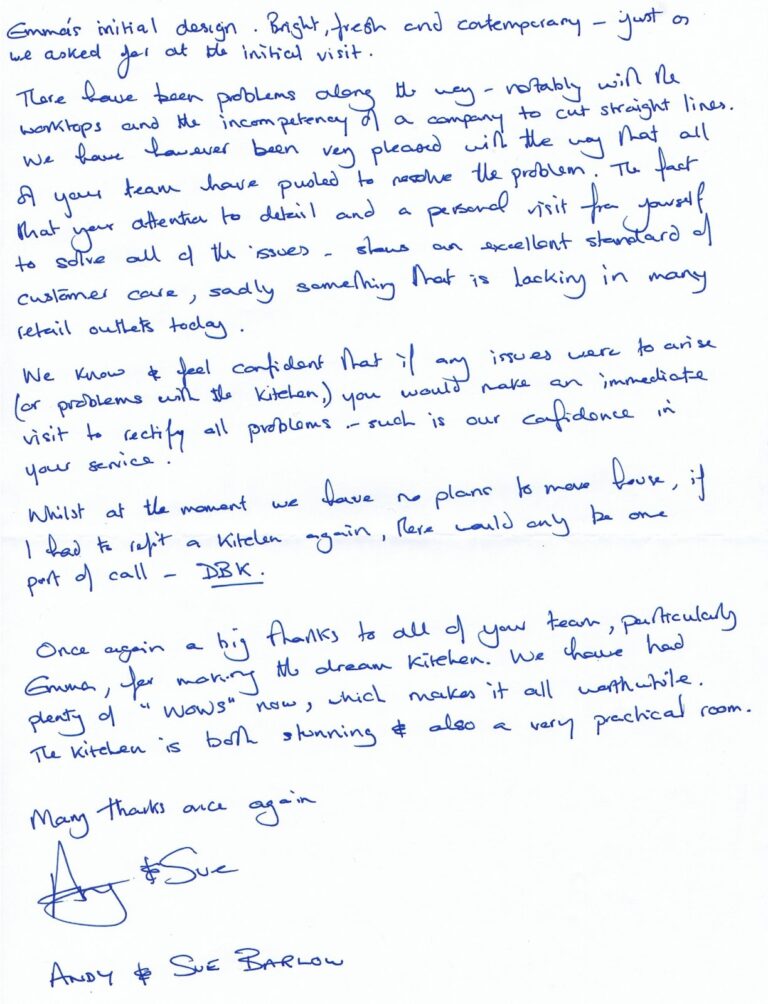 Emma's initial design. Bright, fresh and contemporary – just as
we asked for at the initial visit.
There have been problems along the way – notably with the
worktops and the incompetency of a company to cut straight lines.
We have however been very pleased with the way that all
of your team have pulled to resolve the problem. The fact
that your attention to detail and a personal visit from yourself
to solve all of the issues – shows an excellent standard of
customer care, sadly something that is lacking in many
retail outlets today.
We know & feel confident that if any issues were to arise
(or problems with the kitchen,) you would make an immediate
visit to rectify all problems – such is our confidence in
your service.
Whilst at the moment we have no plans to move house, if
I had to refit a kitchen again, there would only be one
port of call – DBK.
Once again a big thanks to all of your team, particularly
Emma, for making the dream kitchen. We have had
plenty of "WOWS" now, which makes it all worthwhile.
The kitchen is both stunning & also a very practical room.
Many thanks once again
Andy & Sue
ANDY & SUE BARLOW